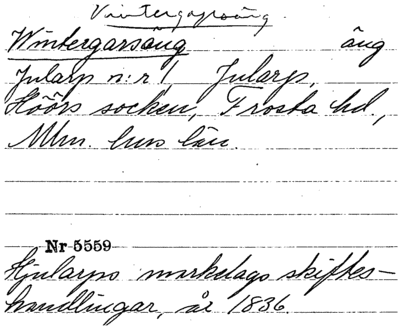 Vintergapsäng
Wintergarsäng äng
Jularp n:r 1, Jularp,
Höörs socken, Frosta hd.,
Mlm. hus län.
Nr 5559
Hjularps markelags skiftes-
handlingar, år 1836.